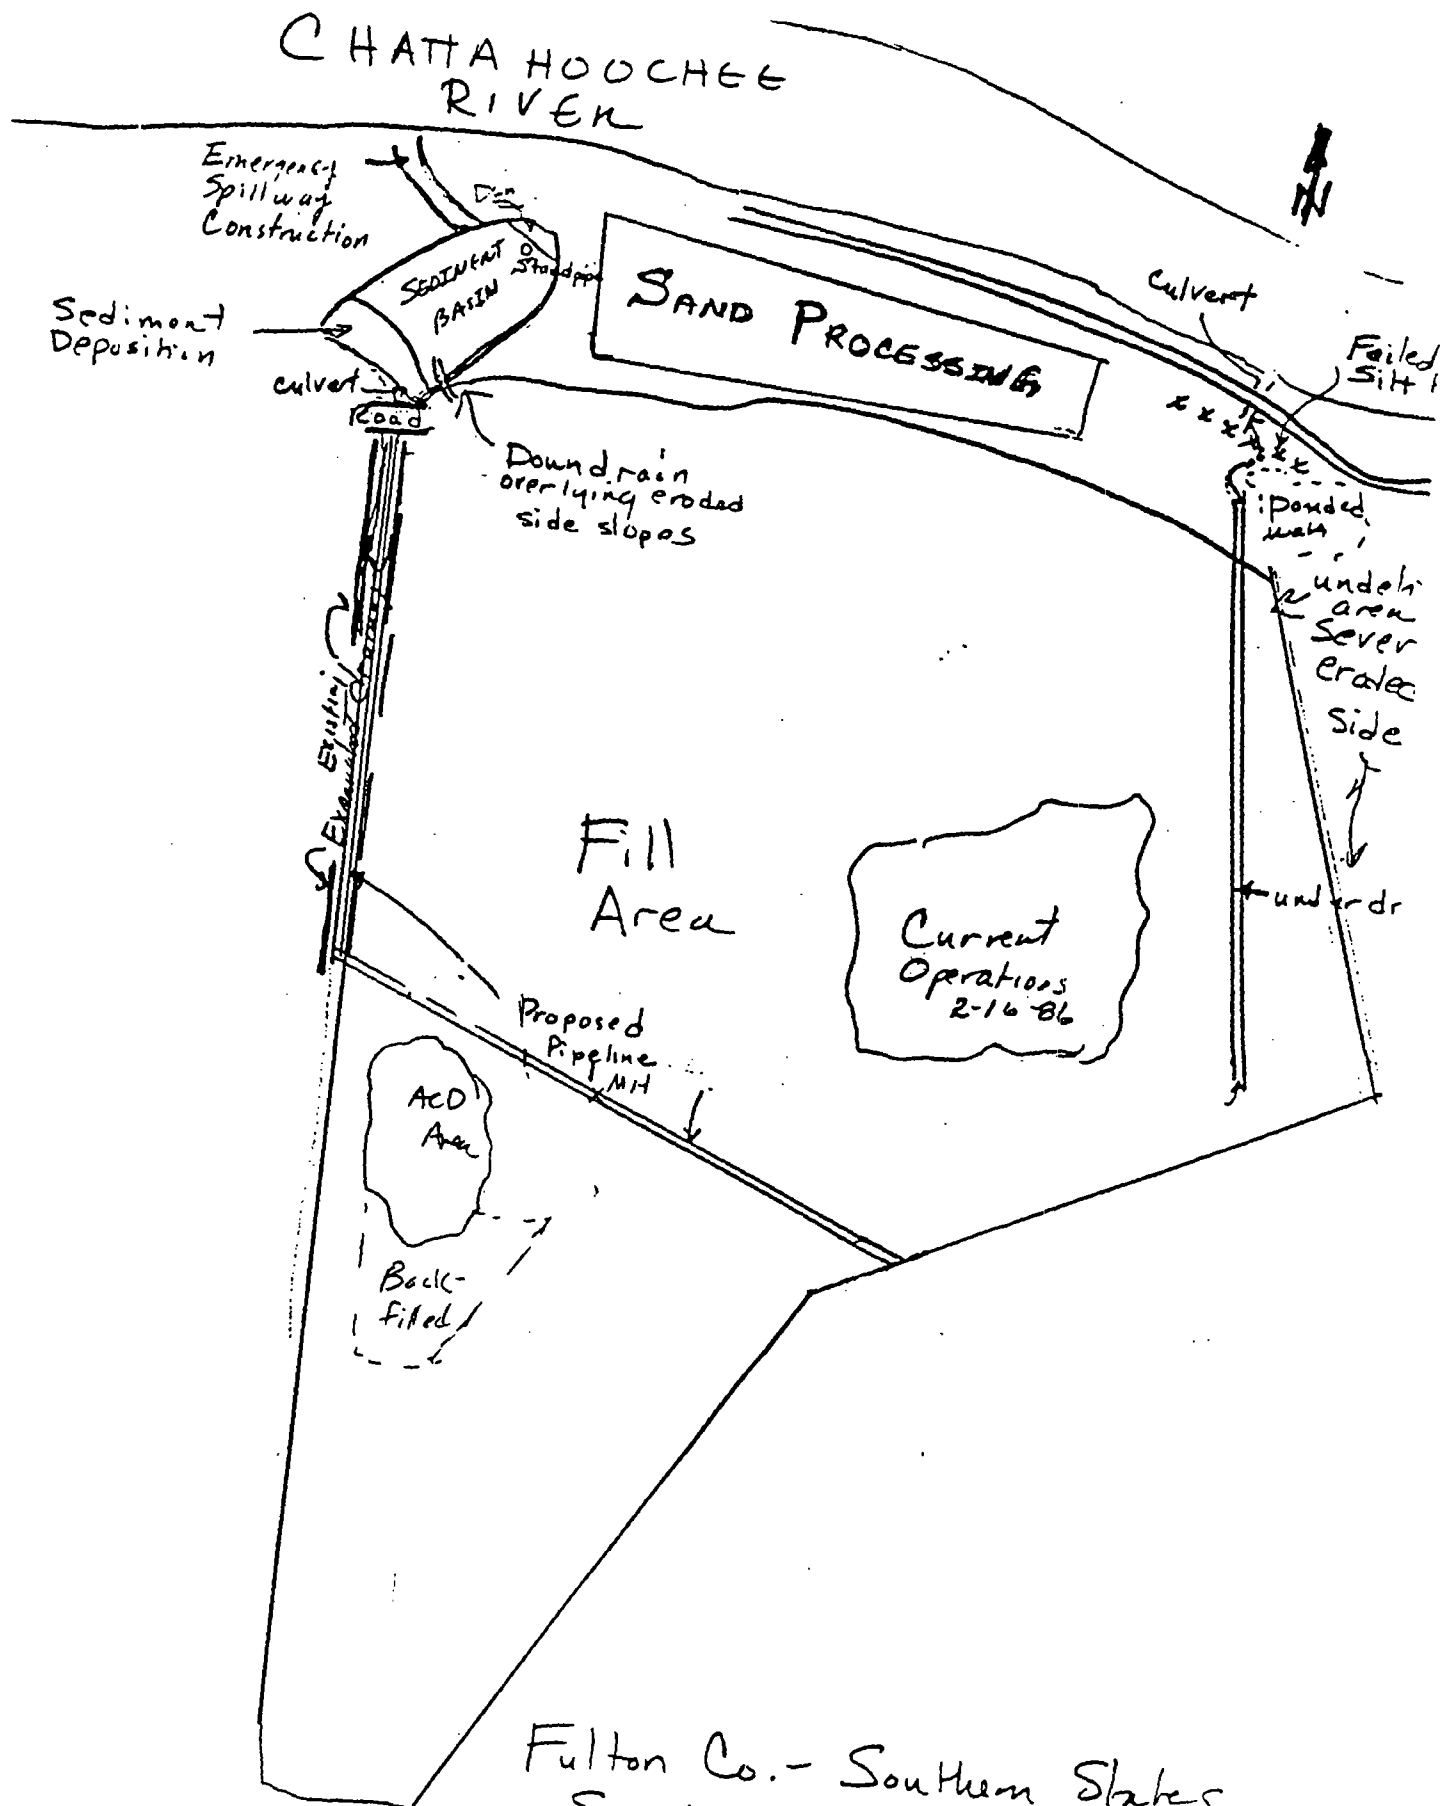 CHATTAHOOCHEE
RIVER
Emergency
Spillway
Construction
N
SEDIMENT
BASIN
Standpipe
SAND PROCESSING
Culvert
Sediment
Deposition
Failed
Silt
culvert
Road
x x x x
x x x
Downdrain
overlying eroded
side slopes
Ponded
area
Sever
eroded
Side
Existing
Fill
Area
Current
Operations
2-16-86
under dr
Proposed
Pipeline
MH
ACD
Area
Back-
filled
Fulton Co.- Southern States